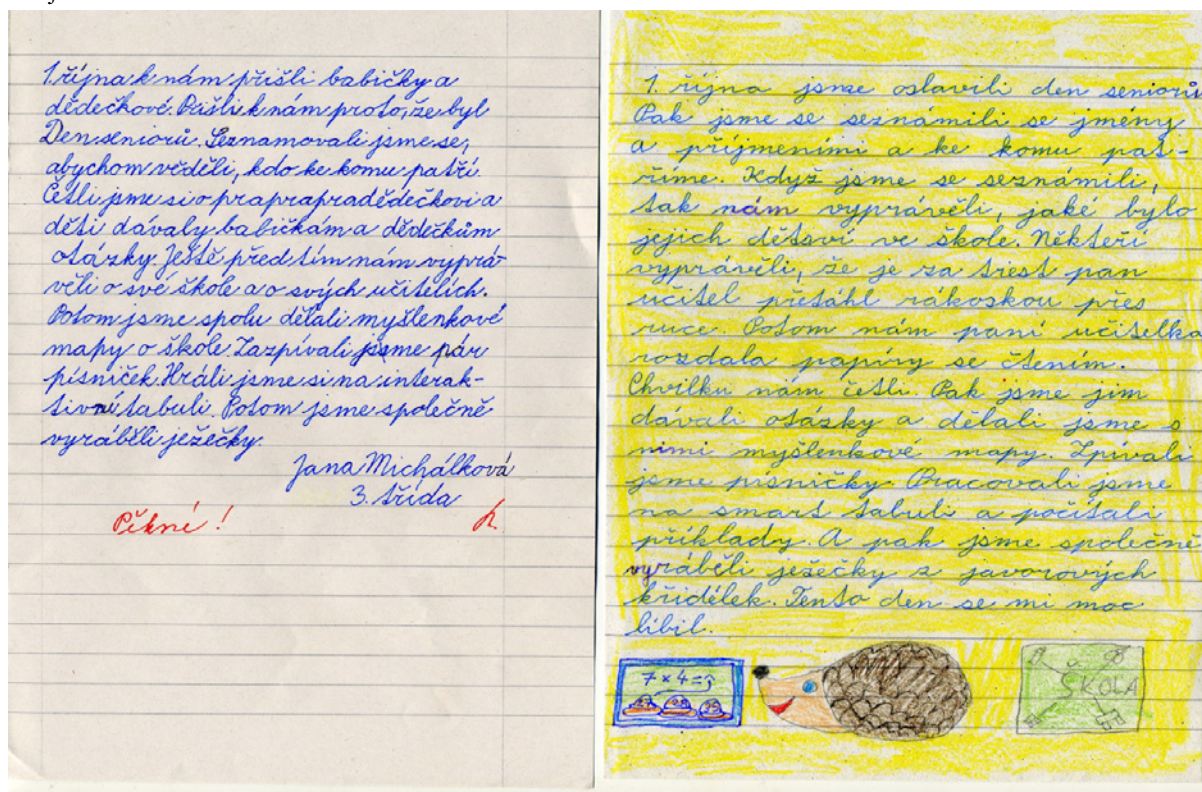 1. října k nám přišli babičky a
dědečkové. Přišli k nám proto, že byl
Den seniorů. Seznamovali jsme se,
abychom věděli, kdo ke komu patří.
Četli jsme si o praprapradědečkovi a
děti dávaly babičkám a dědečkům
otázky. Ještě před tím nám vyprá-
věli o své škole a o svých učitelích.
Potom jsme spolu dělali myšlenkové
mapy o škole Zazpívali jsme pár
písniček. Hráli jsme si na interak-
tivní tabuli. Potom jsme společně
vyráběli ježečky.
Jana Michálková
3. třída
Pěkné!
1. října jsme oslavili den seniorů
Pak jsme se seznámili se jmény
a příjmeními a ke komu pat-
říme. Když jsme se seznámili,
tak nám vyprávěli, jaké bylo
jejich dětsví ve škole. Někteří
vyprávěli, že je za trest pan
učitel přetáhl rákoskou přes
ruce. Potom nám paní učitelka
rozdala papíry se čtením.
Chvilku nám četli. Pak jsme jim
dávali otázky a dělali jsme s
nimi myšlenkové mapy. Zpívali
jsme písničky. Pracovali jsme
na smart tabuli a počítali
příklady. A pak jsme společně
vyráběli ježečky z javorových
křidélek. Tento den se mi moc
líbil.
7 x 4 = ?
ŠKOLA